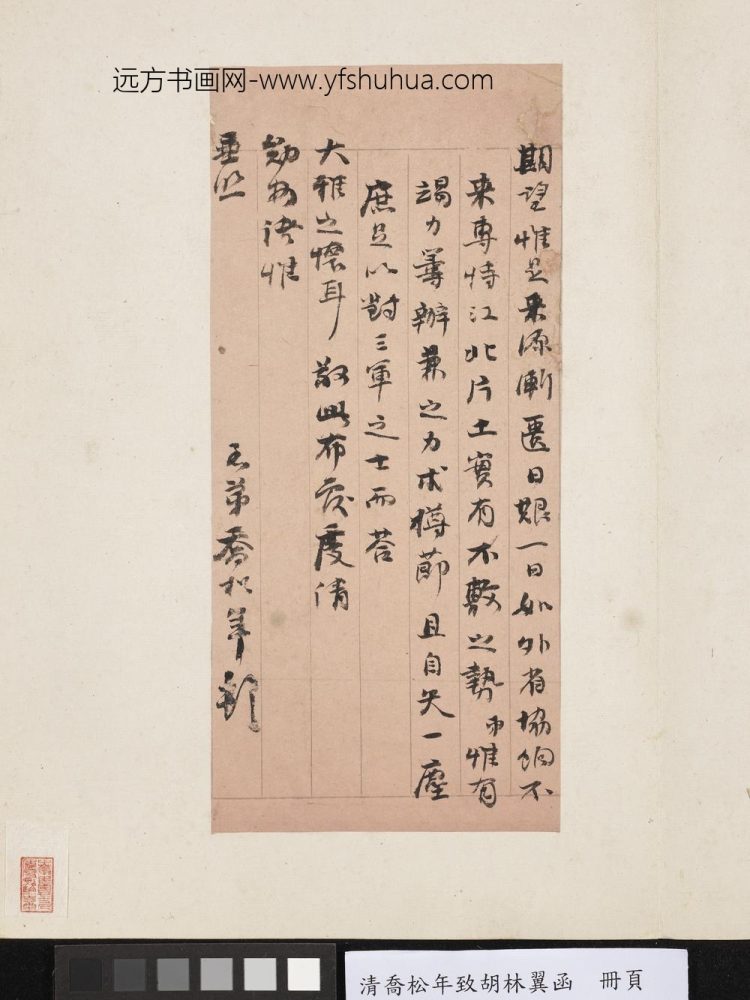 远方书画网-www.yfshuhua.com
期望惟是来源漸匮日艱一日如外省協餉不
来專恃江北片土實有不敷之勢弟惟有
竭力籌辦兼之力求樽節且自矢一塵
庶足以對三軍之士而荅
大雅之懷耳敬此布 請
勛 惟
垂照
弟喬松年
清喬松年致胡林翼函 冊頁